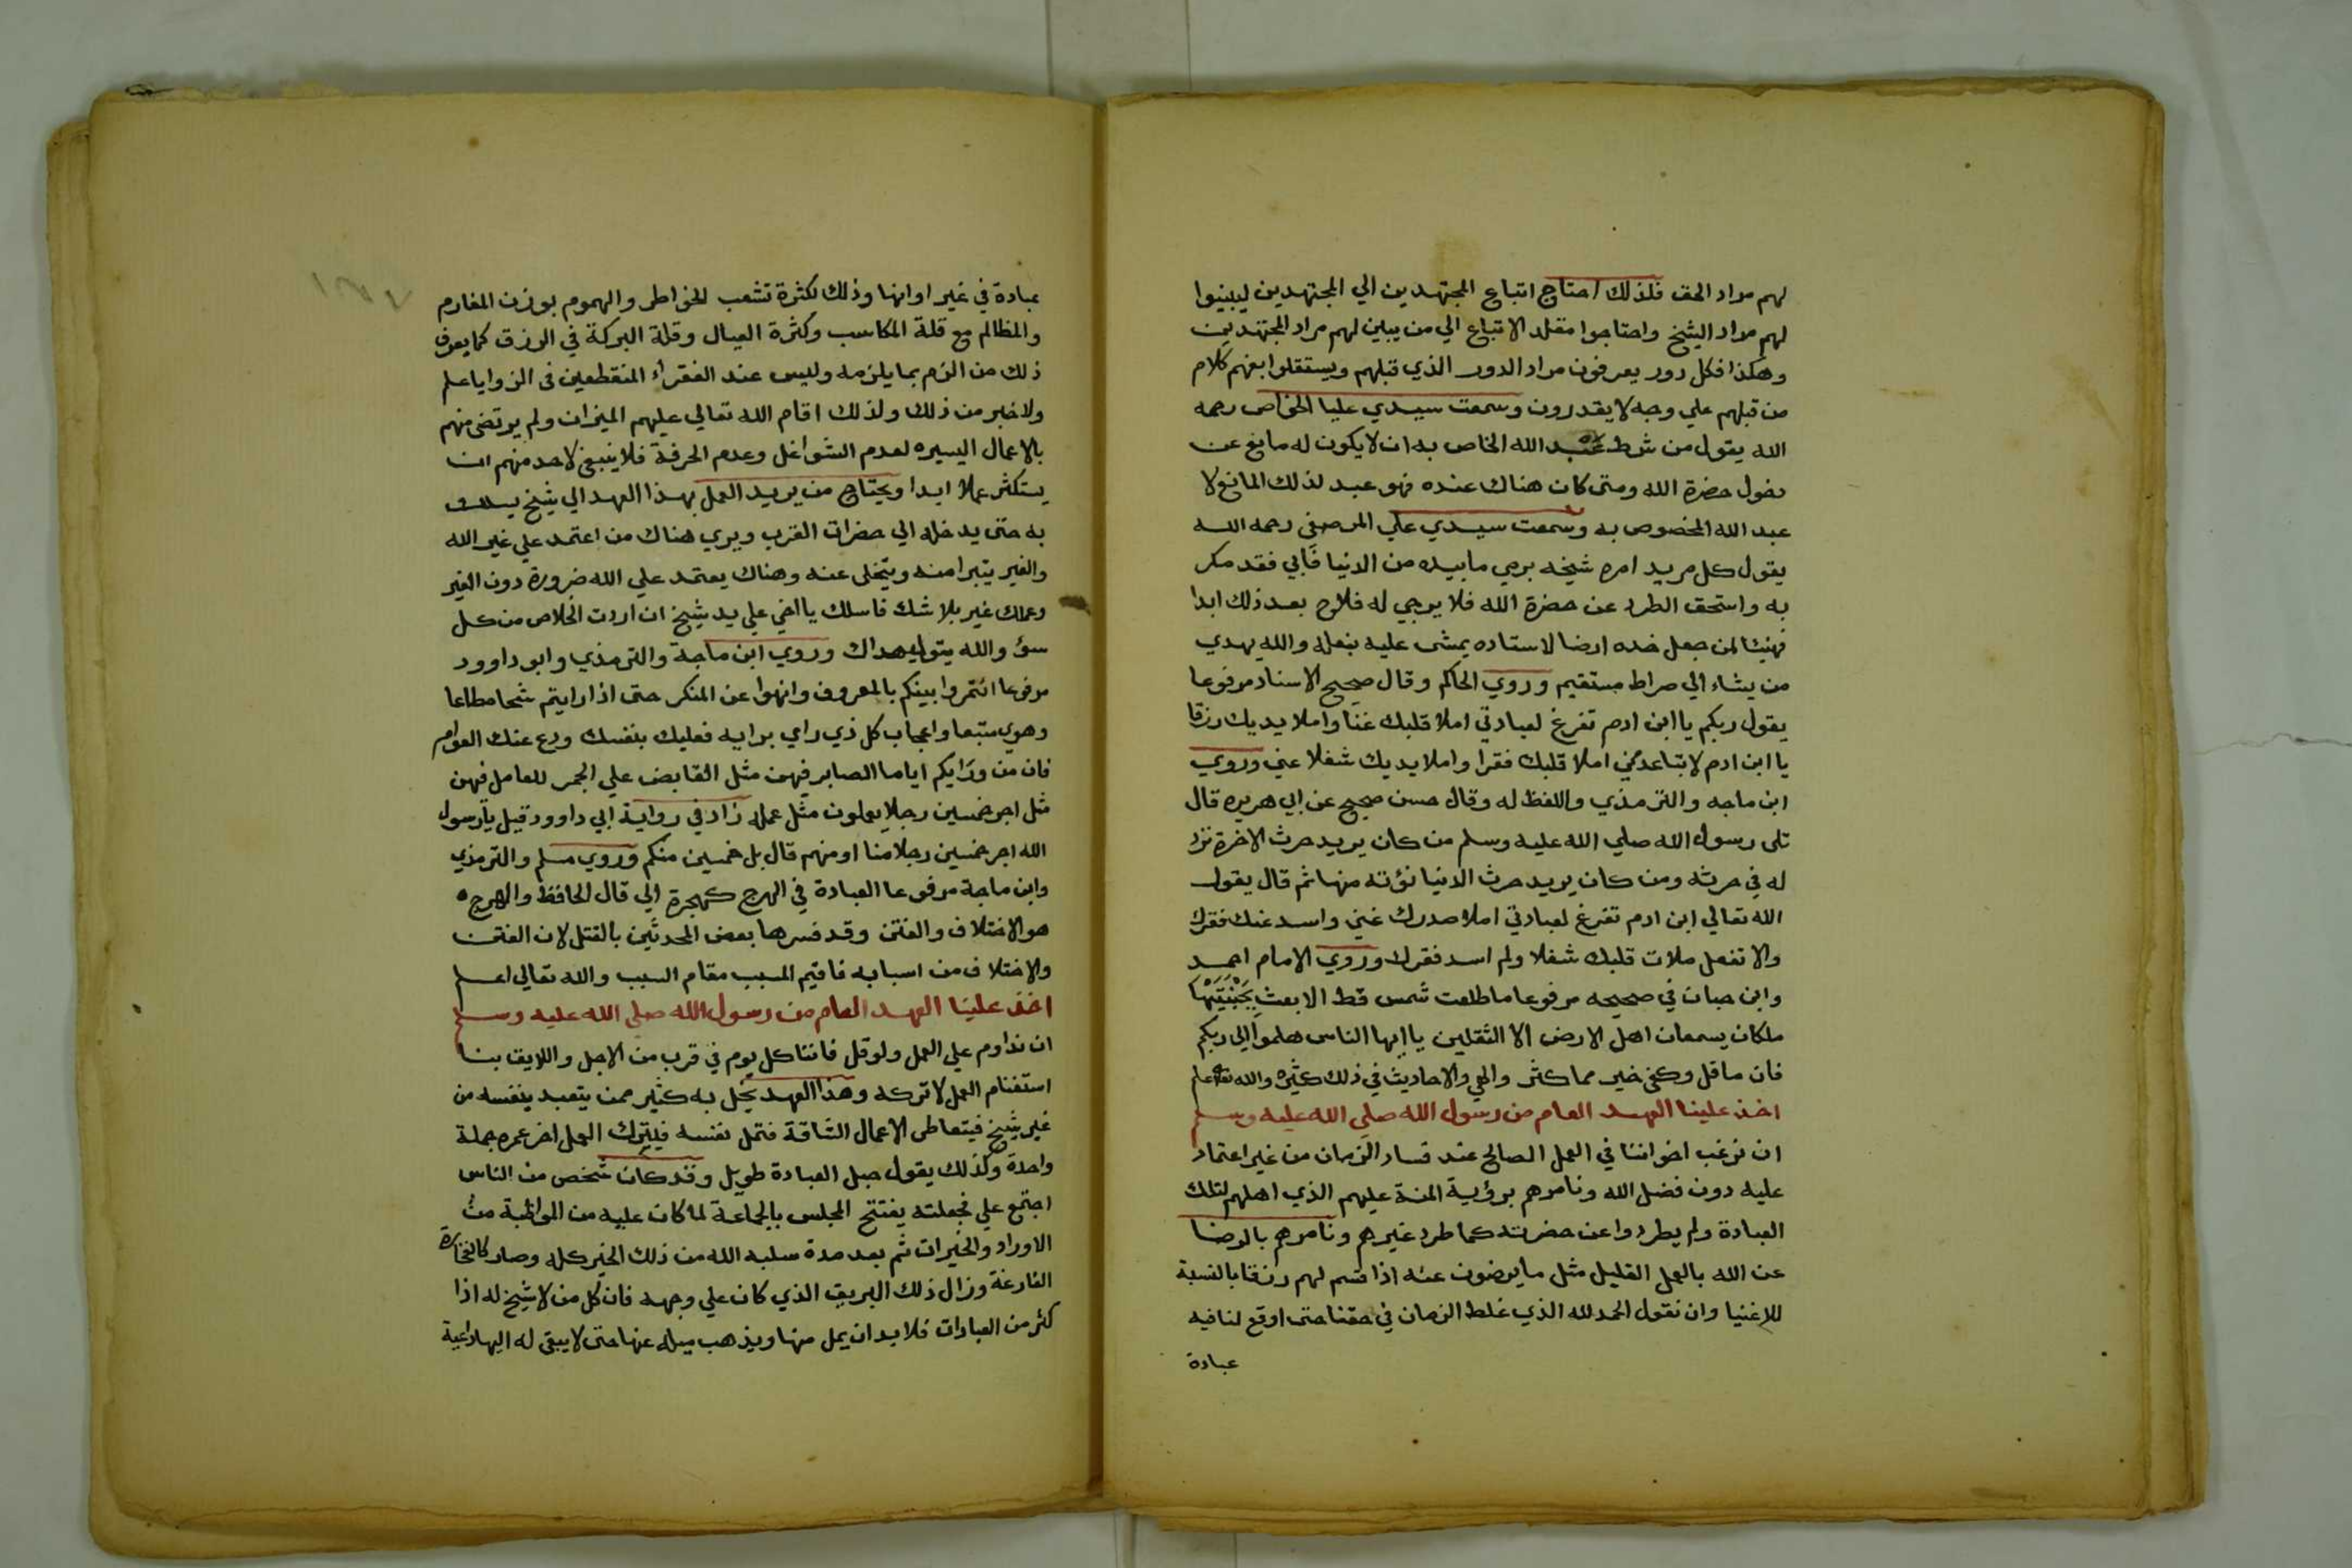 لهم مراد الحق فلذلك احتاج اتباع المجتهدين الي المجتهدين ليبينوا
لهم مراد الشيخ واحتاجوا مقلد الاتباع الي من يبين لهم مراد المجتهدين
وهكذا فكل دور يعرفون مراد الدور الذي قبلهم ويستقلوا بفهم كلام
من قبلهم علي وجه لا يقدرون وسمعت سيدي عليا الخواص رحمه
الله يقول من شرط عبد الله الخاص به ان لا يكون له مانع عن
دخول حضرة الله ومتي كان هناك عنده فهو عبد لذلك المانع لا
عبد الله المخصوص به وسمعت سيدي علي المرصفي رحمه الله
يقول كل مريد امره شيخه برمي ما بيده من الدنيا فابي فقد مكر
به واستحق الطرد عن حضرة الله فلا يرجي له فلاح بعد ذلك ابدا
فهنيئا لمن جعل خده ارضا لاستاده يمشي عليه بنعله والله يهدي
من يشاء الي صراط مستقيم وروي الحاكم وقال صحيح الاسناد مرفوعا
يقول ربكم يا ابن ادم تفرغ لعبادتي املأ قلبك غنا واملا يديك رزقا
يا ابن ادم لا تباعد مني املا قلبك فقرا واملا يديك شغلا عني وروي
ابن ماجه والترمذي واللفظ له وقال حسن صحيح عن ابي هريره قال
تلى رسول الله صلي الله عليه وسلم من كان يريد حرث الاخرة نزد
له في حرثه ومن كان يريد حرث الدنيا نؤته منها ثم قال يقول
الله تعالي ابن ادم تفرغ لعبادتي املأ صدرك غني واسد عنك فقرك
والا تفعل ملات قلبك شغلا ولم اسد فقرك وروي الامام احمد
وابن حبان في صحيحه مرفوعا ما طلعت شمس قط الا بعث بجنبتيها
ملكان يسمعان اهل الارض الا الثقلين يا ايها الناس هلموا الي ربكم
فان ما قل وكفي خير مما كثر والهي والاحاديث في ذلك كثيره والله تعالي اعلم
اخذ علينا العهد العام من رسول الله صلي الله عليه وسلم
ان نرغب اخواننا في العمل الصالح عند فساد الزمان من غير اعتماد
عليه دون فضل الله ونامرهم برؤية المنة عليهم الذي اهلهم لتلك
العبادة ولم يطردوا عن حضرته كما طرد غيرهم ونامرهم بالرضا
عن الله بالعمل القليل مثل ما يرضون عنه اذا قسم لهم رزقا بالنسبة
للاغنيا وان نقول الحمد لله الذي غلط الزمان في حقنا حتى اوقع لنا فيه
عبادة
عبادة في غير اوانها وذلك لكثرة تشعب الخواطر والهموم بوزن المغارم
والمظالم مع قلة المكاسب وكثرة العيال وقلة البركة في الرزق كما يعرف
ذلك من الزم بما يلزمه وليس عند الفقراء المنقطعين في الزوايا علم
ولا خبر من ذلك ولذلك اقام الله تعالي عليهم الميزان ولم يرتضي منهم
بالاعمال اليسيره لعدم الشواغل وعدم الحرفة فلا ينبغي لاحد منهم ان
يستكثر عملا ابدا ويحتاج من يريد العمل بهذا العهد الي شيخ يسلك
به حتى يدخله الي حضرات القرب ويري هناك من اعتمد علي غير الله
والغير يتبرا منه ويتخلى عنه وهناك يعتمد علي الله ضرورة دون الغير
وعملك غير بلا شك فاسلك يا اخي علي يد شيخ ان اردت الخلاص من كل
سؤ والله يتولي هداك وروي ابن ماجة والترمذي وابو داوود
مرفوعا ائتمروا بينكم بالمعروف وانهوا عن المنكر حتى اذا رايتم شحا مطاعا
وهوي متبعا واعجاب كل ذي راي برايه فعليك بنفسك ودع عنك العوام
فان من ورايكم اياما الصابر فيهن مثل القابض علي الجمر للعامل فهن
مثل اجر خمسين رجلا يعملون مثل عمله زاد في رواية ابي داوود قيل يارسول
الله اجر خمسين رجلا منا او منهم قال بل خمسين منكم وروي مسلم والترمذي
وابن ماجة مرفوعا العبادة في الهرج كهجرة الي قال الحافظ والهرج
هو الاختلاف والفتن وقد فسرها بعض المحدثين بالقتل لان الفتن
والاختلاف من اسبابه فاقيم المسبب مقام السبب والله تعالي اعلم
اخذ علينا العهد العام من رسول الله صلى الله عليه وسلم
ان نداوم علي العمل ولو قل فاننا كل يوم في قرب من الاجل واللايق بنا
استغنام العمل لا تركه وهذا العهد يخل به كثير ممن يتعبد بنفسه من
غير شيخ فيتعاطى الاعمال الشاقة فتمل نفسه فيترك العمل اخر عمره جملة
واحدة وكذلك يقول حبل العبادة طويل وقد كان شخص من الناس
اجتمع علي فجعلته يفتتح المجلس بالجماعة لما كان عليه من المواظبة من
الاوراد والخيرات ثم بعد مدة سلبه الله من ذلك الخير كله وصار كالفخارة
الفارغة وزال ذلك البريق الذي كان علي وجهه فان كل من لا شيخ له اذا
كثر من العبادات فلا بد ان يمل منها ويذهب ميله عنها حتى لا يبقى له اليها داعية